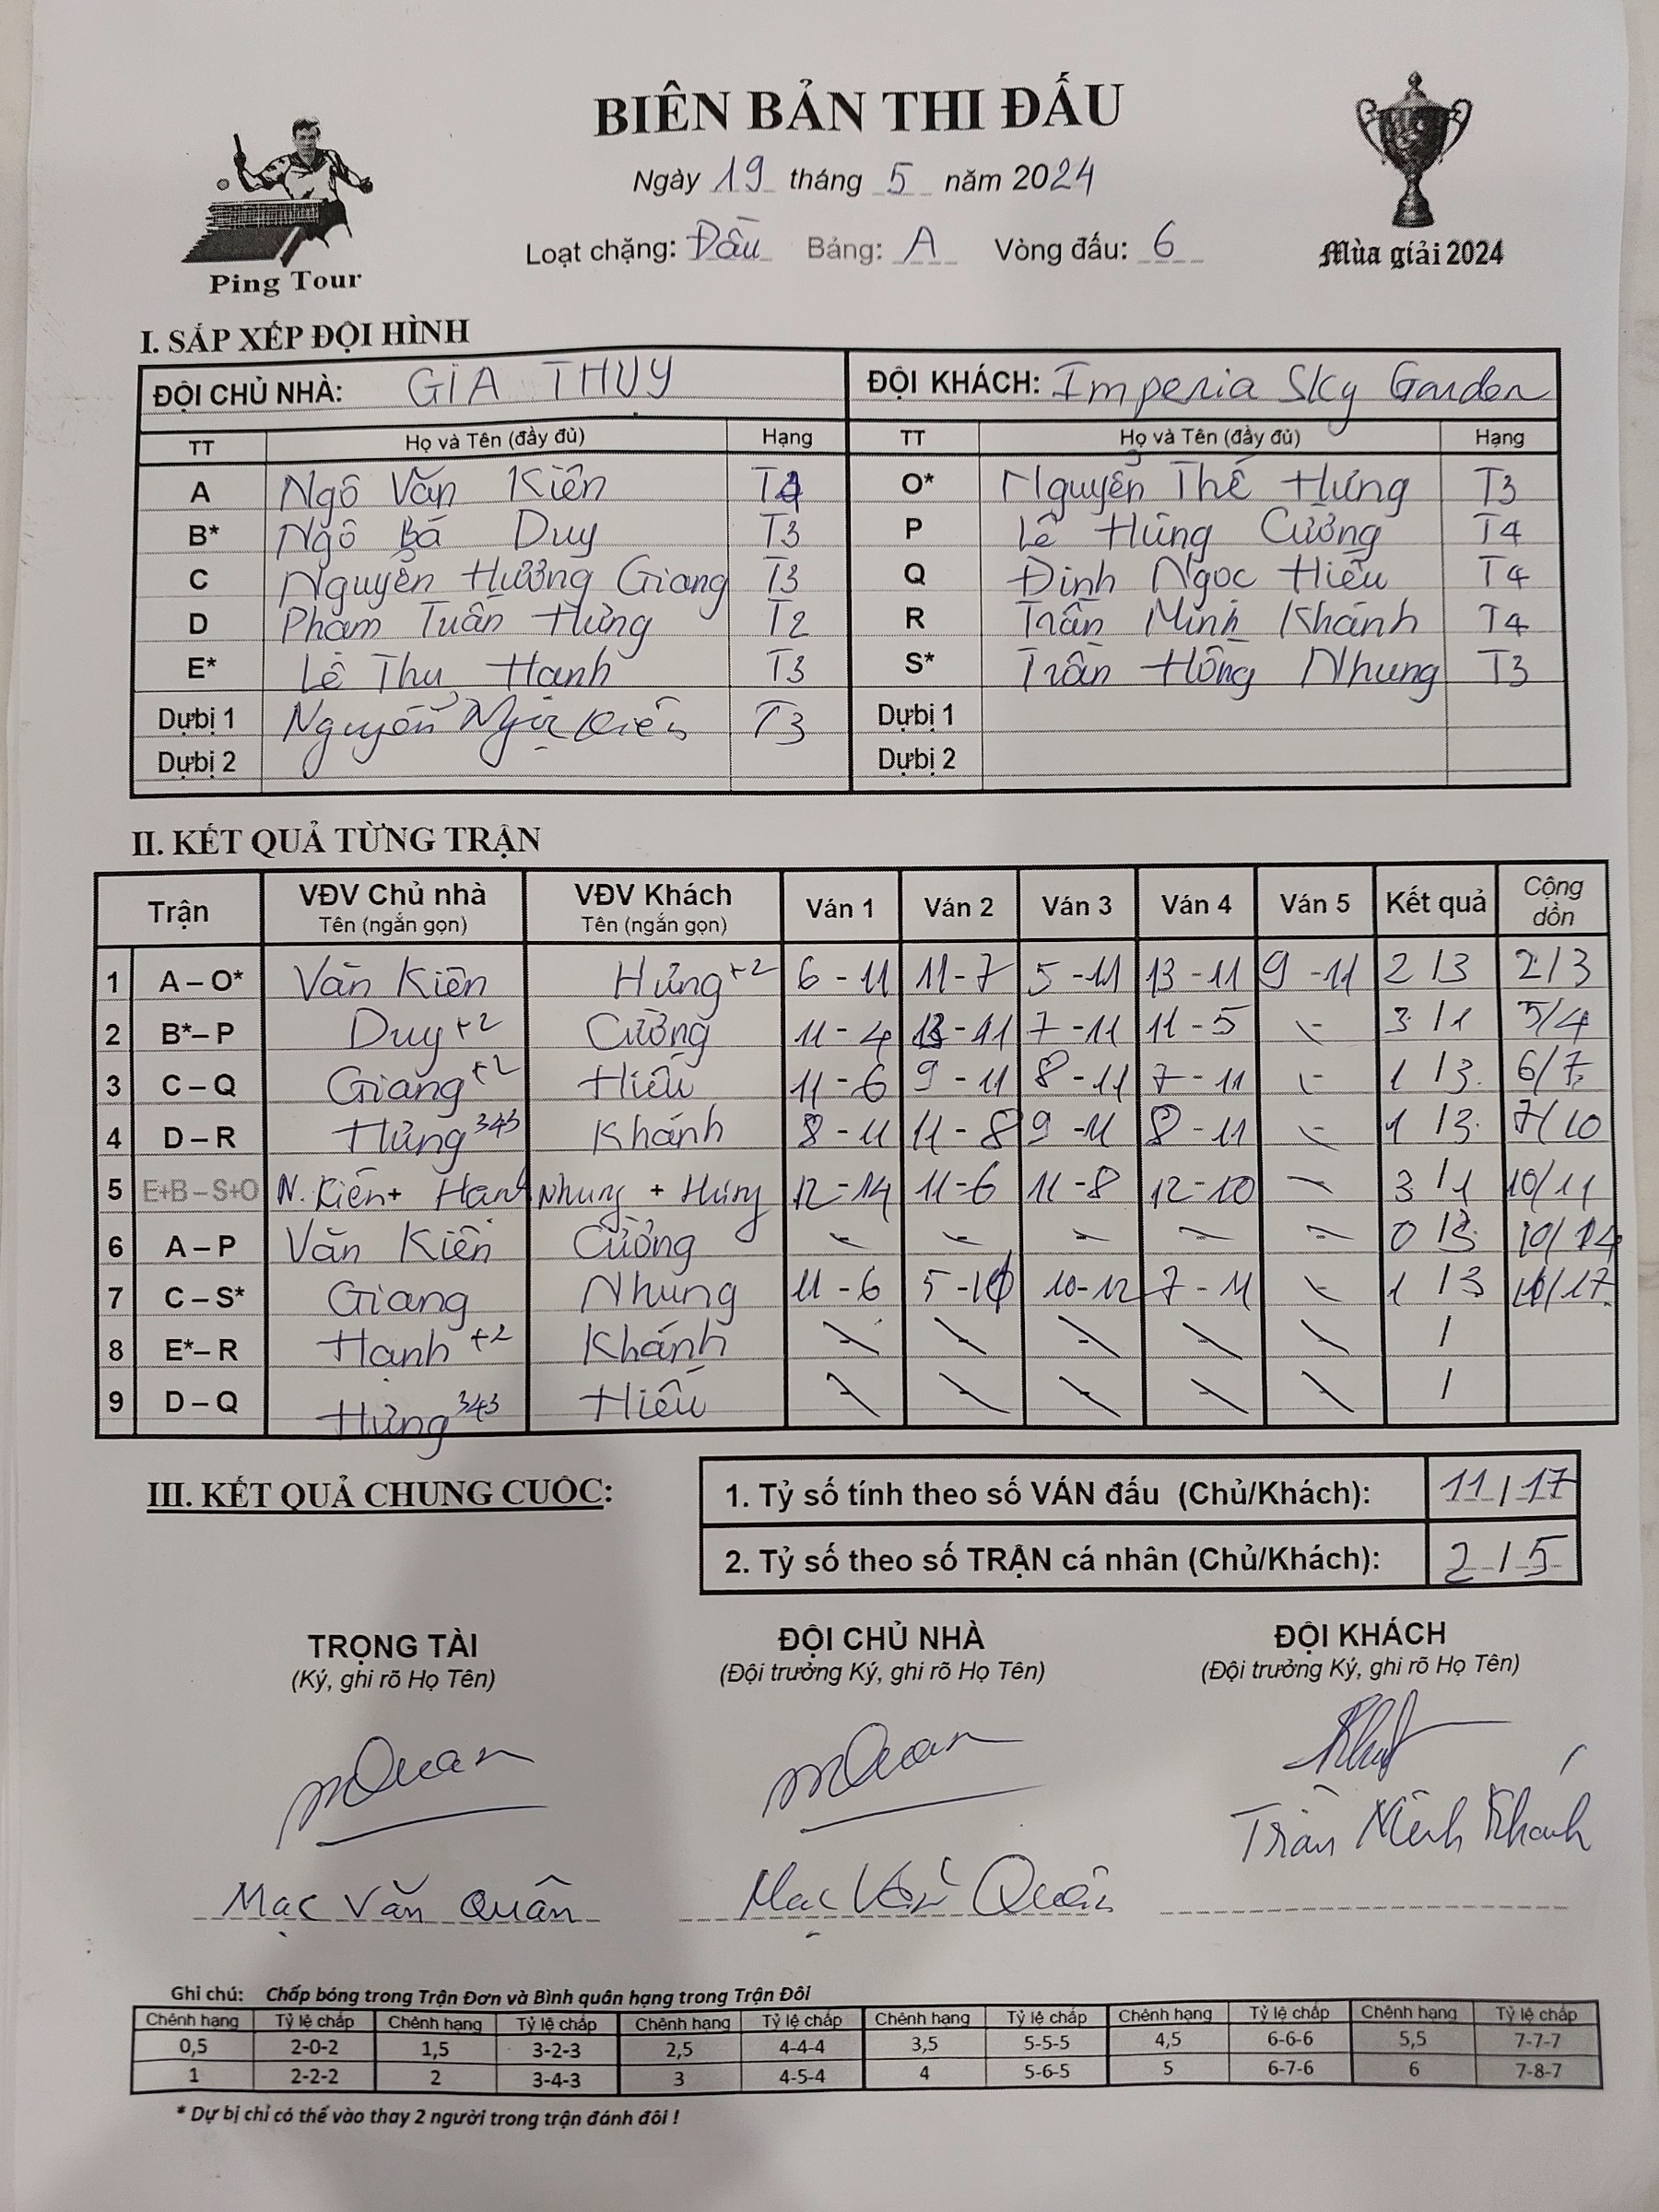 BIÊN BẢN THI ĐẤU
Ngày 19 tháng 5 năm 2024
Loạt chặng: Đầu Bảng: A Vòng đấu: 6
Ping Tour
Mùa giải 2024
I. SẮP XẾP ĐỘI HÌNH
ĐỘI CHỦ NHÀ: GIA THỤY ĐỘI KHÁCH: Imperia Sky Garden
TT Họ và Tên (đầy đủ) Hạng TT Họ và Tên (đầy đủ) Hạng
A Ngô Văn Kiên T4 O* Nguyễn Thế Hưng T3
B* Ngô Bá Duy T3 P Lê Hùng Cường T4
C Nguyễn Hương Giang T3 Q Đinh Ngọc Hiếu T4
D Phạm Tuấn Hưng T2 R Trần Minh Khánh T4
E* Lê Thu Hạnh T3 S* Trần Hồng Nhung T3
Dự bị 1 Nguyễn Ngọc Kiên T3 Dự bị 1
Dự bị 2 Dự bị 2
II. KẾT QUẢ TỪNG TRẬN
Trận VĐV Chủ nhà VĐV Khách Ván 1 Ván 2 Ván 3 Ván 4 Ván 5 Kết quả Cộng dồn
Tên (ngắn gọn) Tên (ngắn gọn)
1 A – O* Văn Kiên Hưng +2 6 - 11 11 - 7 5 - 11 13 - 11 9 - 11 2 / 3 2/3
2 B* – P Duy +2 Cường 11 - 4 13 - 11 7 - 11 11 - 5 - 3 / 1 5/4
3 C – Q Giang +2 Hiếu 11 - 6 9 - 11 8 - 11 7 - 11 - 1 / 3 6/7
4 D – R Hưng 343 Khánh 8 - 11 11 - 8 9 - 11 8 - 11 - 1 / 3 7/10
5 E+B – S+O N. Kiên + Hạnh Nhung + Hưng 12 - 14 11 - 6 11 - 8 12 - 10 - 3 / 1 10/11
6 A – P Văn Kiên Cường - - - - - 0 / 3 10/14
7 C – S* Giang Nhung 11 - 6 5 - 11 10 - 12 7 - 11 - 1 / 3 11/17
8 E* – R Hạnh +2 Khánh - - - - - /
9 D – Q Hưng 343 Hiếu - - - - - /
III. KẾT QUẢ CHUNG CUỘC:
1. Tỷ số tính theo số VÁN đấu (Chủ/Khách): 11 / 17
2. Tỷ số theo số TRẬN cá nhân (Chủ/Khách): 2 / 5
TRỌNG TÀI ĐỘI CHỦ NHÀ ĐỘI KHÁCH
(Ký, ghi rõ Họ Tên) (Đội trưởng Ký, ghi rõ Họ Tên) (Đội trưởng Ký, ghi rõ Họ Tên)
mQuan mQuan
Trần Minh Khánh
Mạc Văn Quân Mạc Văn Quân
Ghi chú: Chấp bóng trong Trận Đơn và Bình quân hạng trong Trận Đôi
Chênh hạng Tỷ lệ chấp Chênh hạng Tỷ lệ chấp Chênh hạng Tỷ lệ chấp Chênh hạng Tỷ lệ chấp Chênh hạng Tỷ lệ chấp Chênh hạng Tỷ lệ chấp
0,5 2-0-2 1,5 3-2-3 2,5 4-4-4 3,5 5-5-5 4,5 6-6-6 5,5 7-7-7
1 2-2-2 2 3-4-3 3 4-5-4 4 5-6-5 5 6-7-6 6 7-8-7
* Dự bị chỉ có thể vào thay 2 người trong trận đánh đôi !